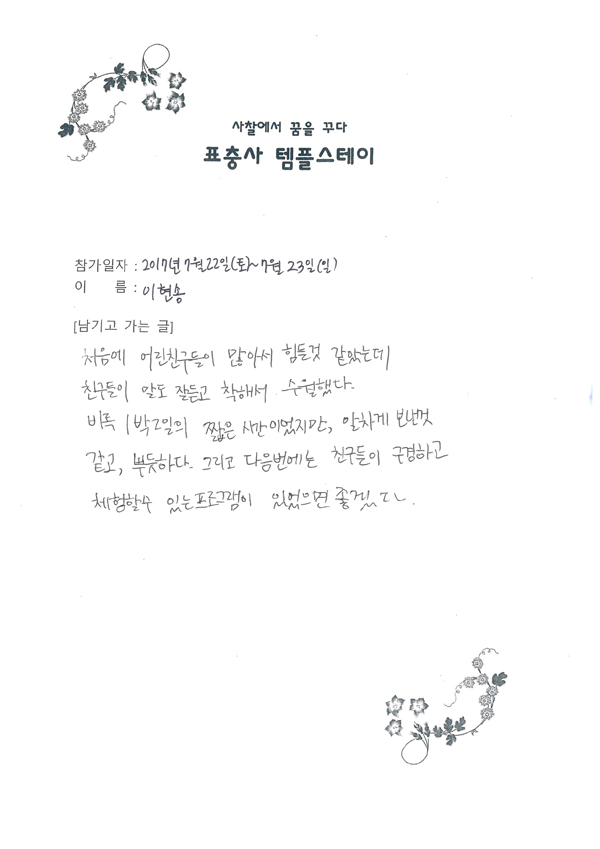 사찰에서 꿈을 꾸다
표충사 템플스테이
참가일자 : 2017년 7월 22일(토)~7월 23일(일)
이 름 : 이현송
[남기고 가는 글]
처음에 어린친구들이 많아서 힘든것 같았는데
친구들이 말도 잘듣고 착해서 수월했다.
비록 1박2일의 짧은 시간이었지만, 알차게 보낸것
같고, 뿌듯하다. 그리고 다음번에는 친구들이 구경하고
체험할수 있는프로그램이 있었으면 좋겠ㄷㅏ.